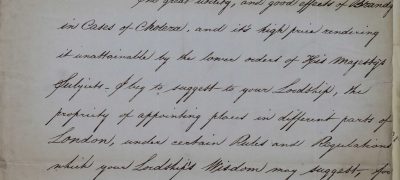 The great utility, and good effects of Brandy
in Cases of Cholera, and its high price rendering
it unattainable by the lower orders of His Majesty's
Subjects – I beg to suggest to your Lordship, the
propriety of appointing places in different parts of
London, under certain Rules and Regulations
which your Lordship's Wisdom may suggest, for